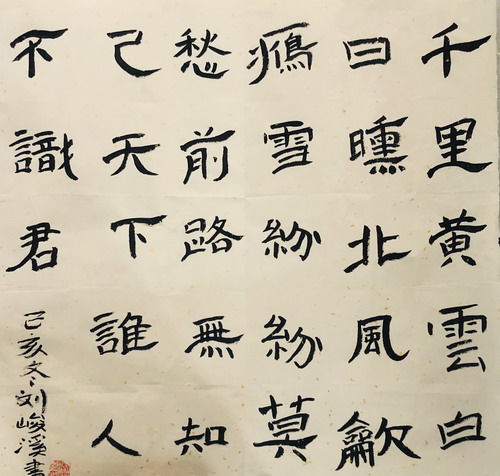 千里黄雲白
日曛北風龡
鴈雪紛紛莫
愁前路無知
己天下誰人
不識君
己亥冬刘峻溪書